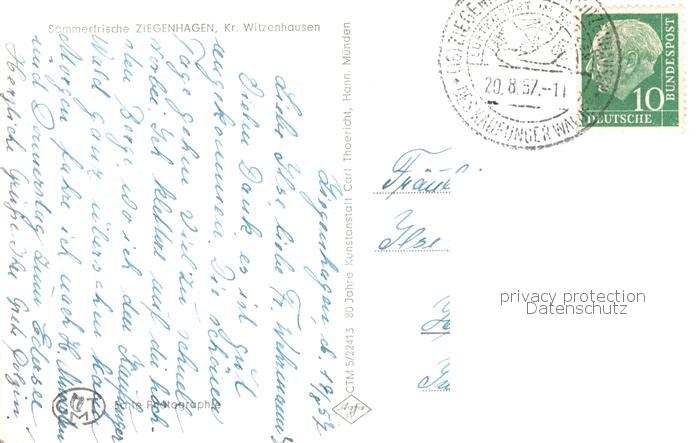 Sommerfrische ZIEGENHAGEN, Kr. Witzenhausen
Ziegenhagen, d. 19/8.57
Liebe Ilse, liebe Fr.
Vielen Dank, es ist gut
angekommen. Die schönen
Tage gehen viel zu schnell
vorbei. Ich klettere auf die höch-
sten Berge, wo ich den Kaufunger
Wald ganz übersehen kann.
Morgen fahre ich nach H. Münden
und Donnerstag zum Edersee
Herzliche Grüße Ihr
CTM 5/22413 80 Jahre Kunstanstalt Carl Thoericht, Hann. Münden
CTM
Echte Photographie
Agfa
20.8.57.-11
KAUFUNGER WALD
10
DEUTSCHE
BUNDESPOST
Fräul
Ilse
privacy protection
Datenschutz